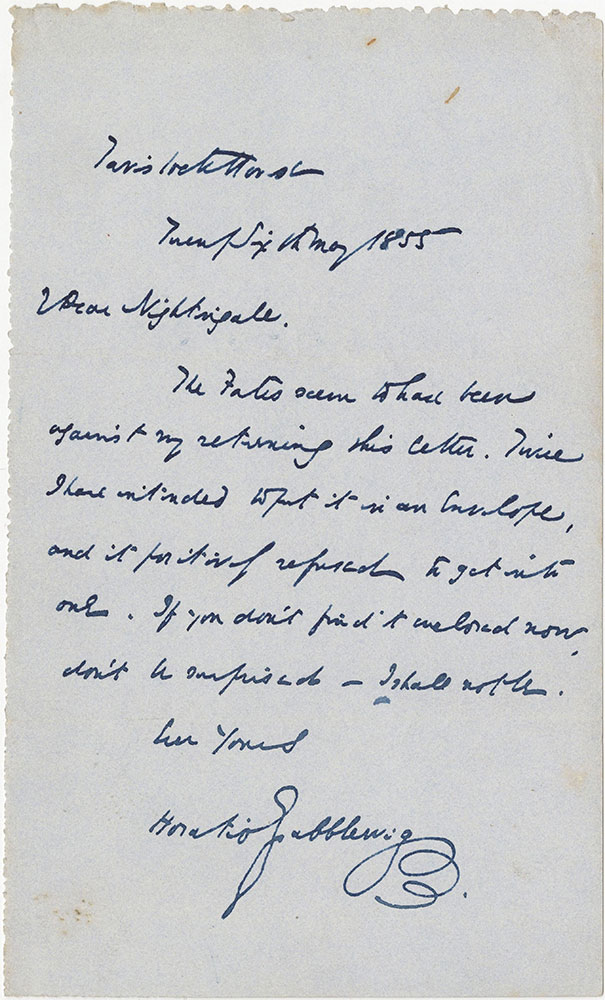 Tavistock House
Twenty Sixth May 1855
My Dear Nightingale.
The Fates seem to have been
against my returning this letter. Twice
I have intended to put it in an Envelope,
and it positively refused to get into
one. If you don't find it enclosed now,
don't be surprised – I shall not be.
Ever Yours
Horatio Gabblewig